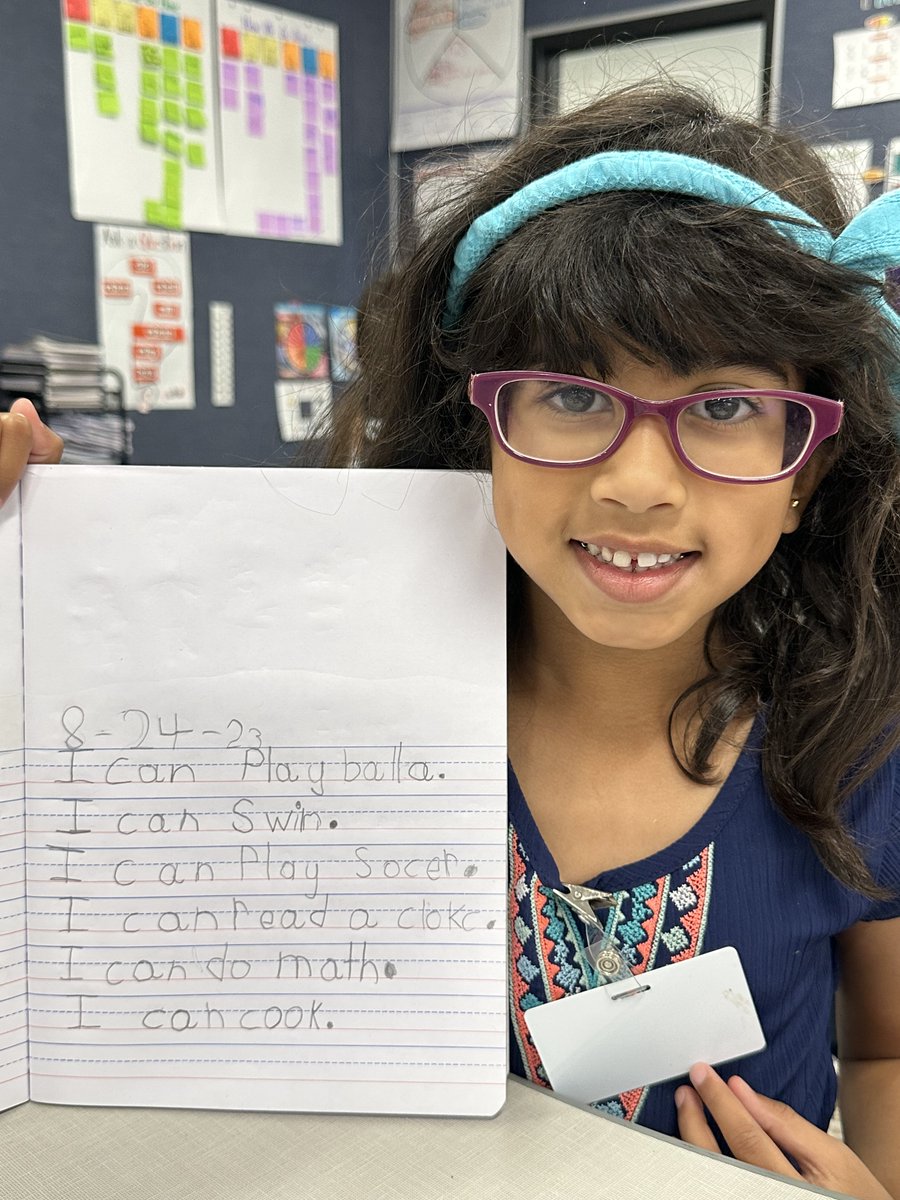 8-24-23
I can Play balla.
I can Swim.
I can Play Socer.
I can read a cloke.
I can do math.
I can cook.